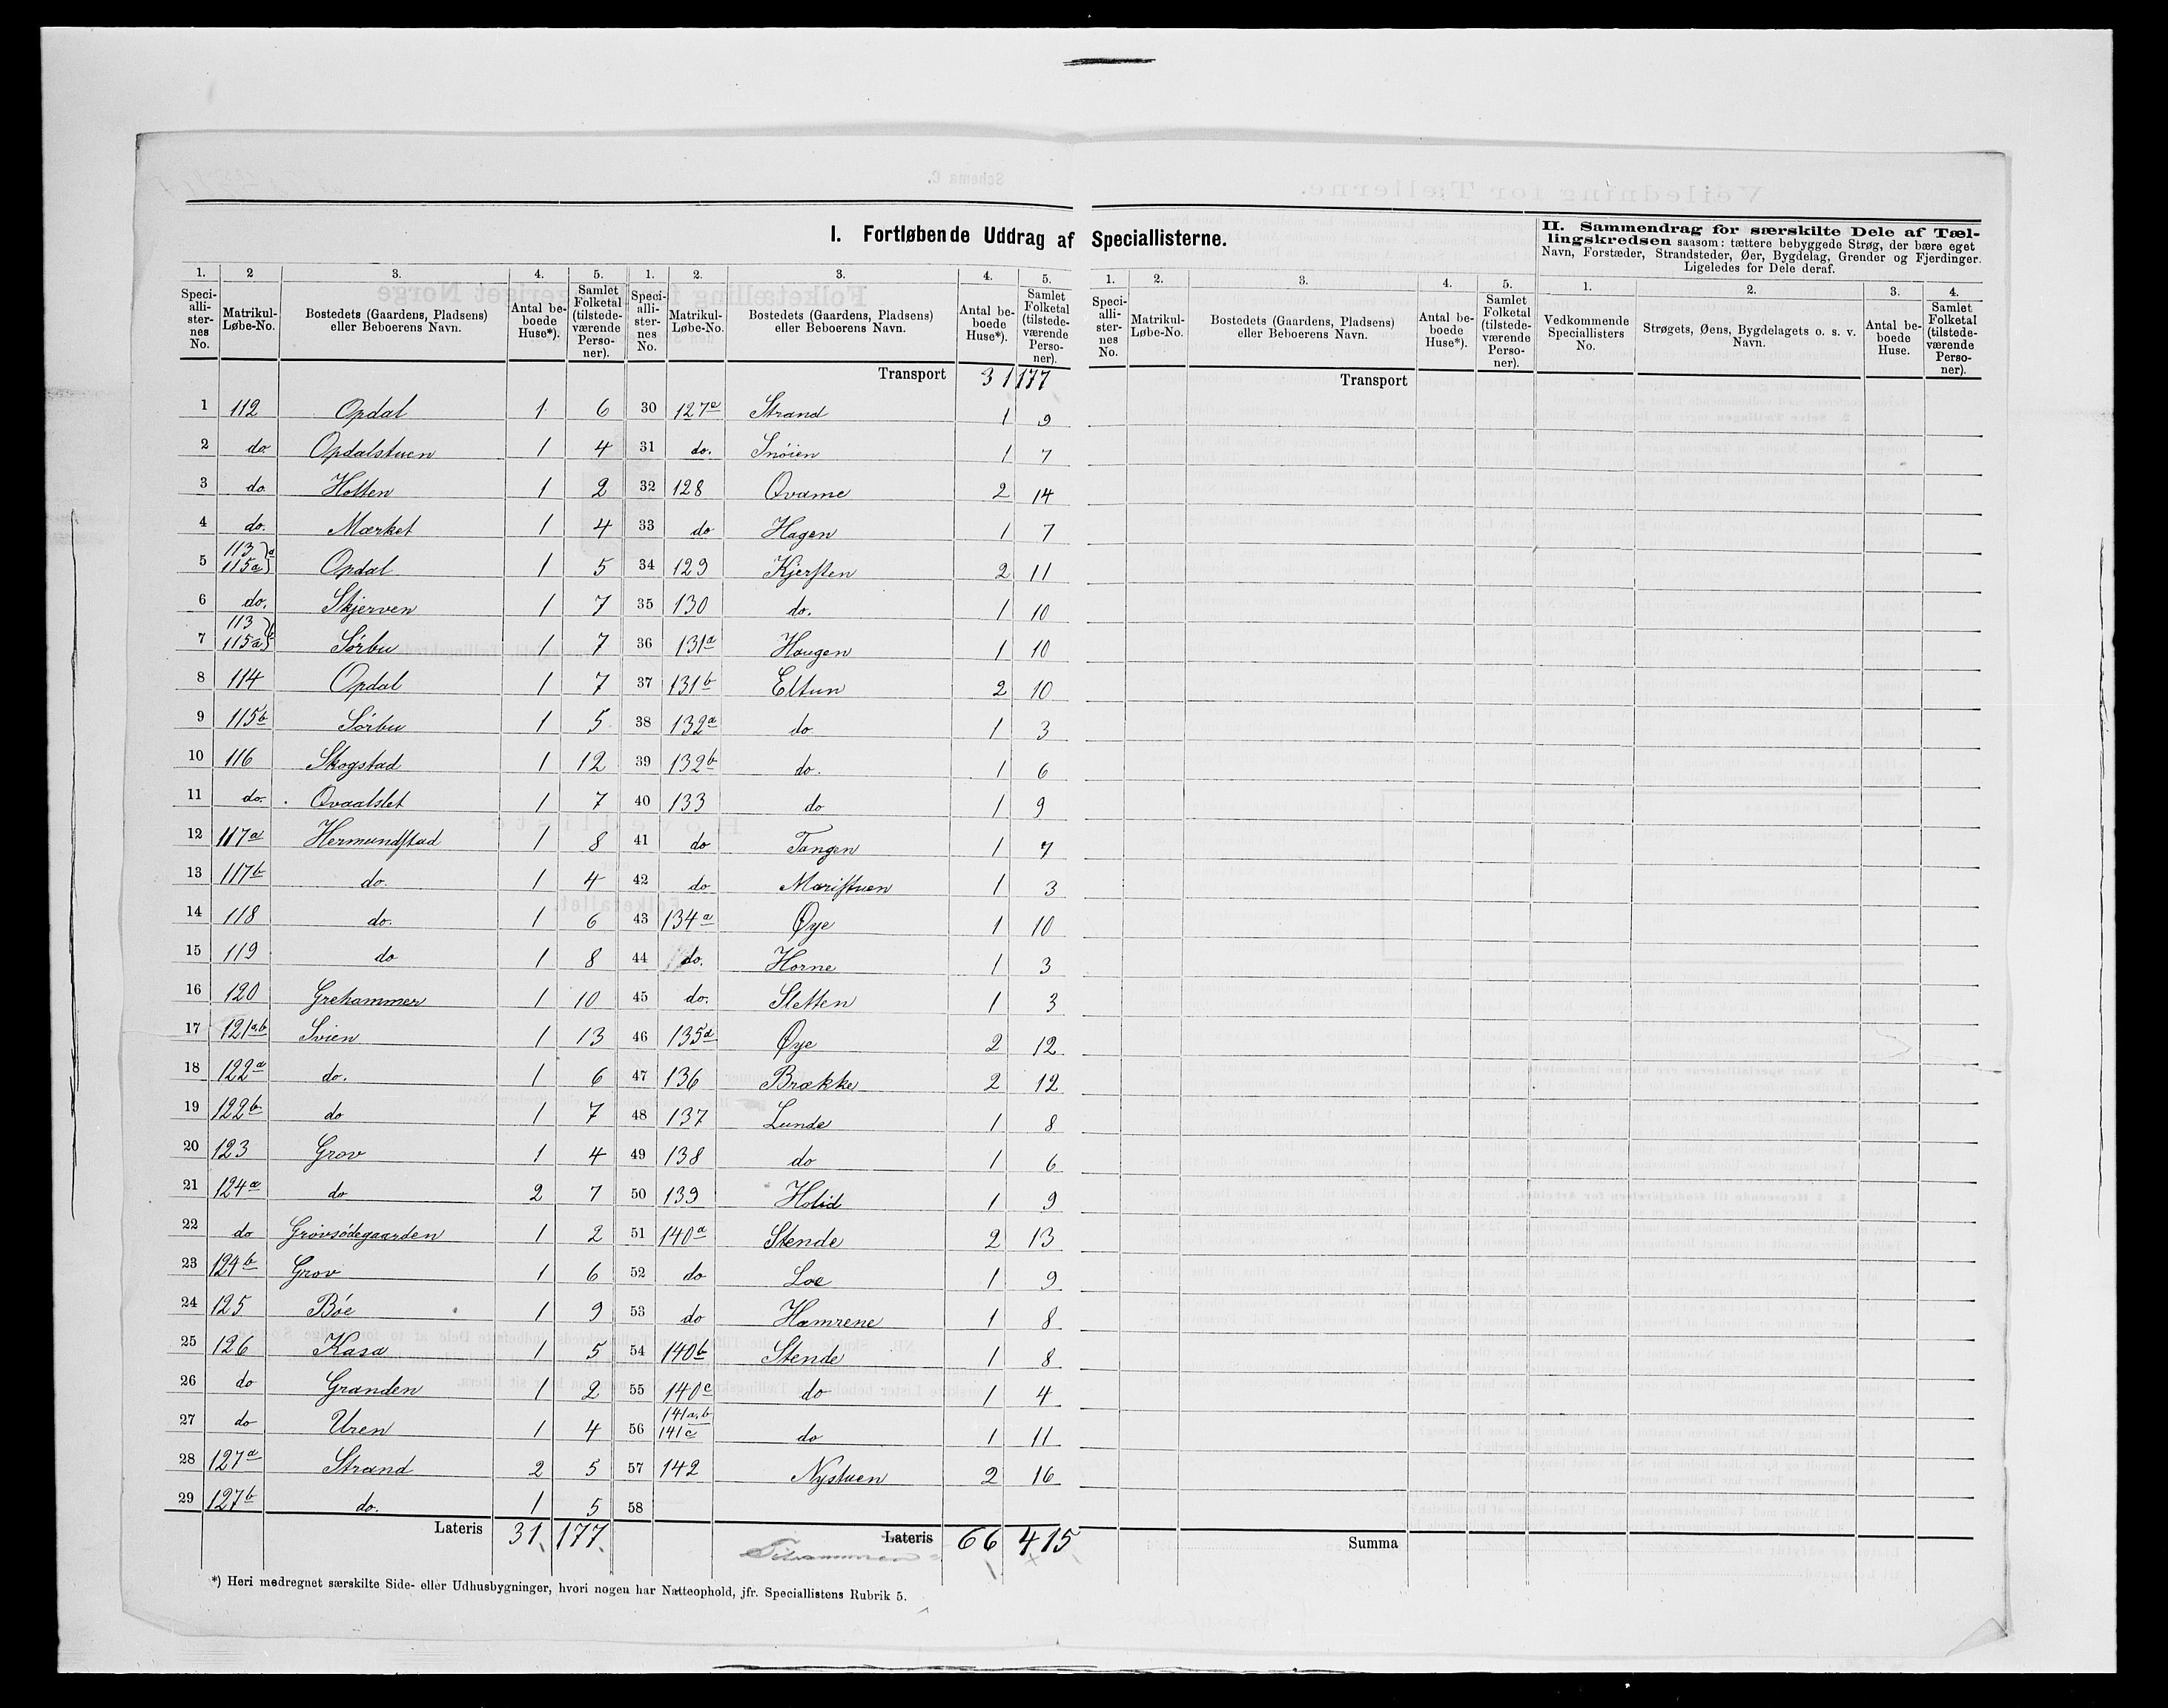 I. Fortløbende Uddrag af Speciallisterne.
II. Sammendrag for særskilte Dele af Tællingskredsen saasom: tættere bebyggede Strøg, der bære eget
Navn, Forstæder, Strandsteder, Øer, Bygdelag, Grender og Fjerdinger.
Ligeledes for Dele deraf.
1. 2 3. 4. 5. 1. 2. 3. 4. 5. 1. 2. 3. 4. 5. 1. 2. 3. 4.
Speciallisternes No. Matrikul-Løbe-No. Bostedets (Gaardens, Pladsens) eller Beboerens Navn. Antal beboede Huse*). Samlet Folketal (tilstedeværende Personer).
Speciallisternes No. Matrikul-Løbe-No. Bostedets (Gaardens, Pladsens) eller Beboerens Navn. Antal beboede Huse*). Samlet Folketal (tilstedeværende Personer).
Speciallisternes No. Matrikul-Løbe-No. Bostedets (Gaardens, Pladsens) eller Beboerens Navn. Antal beboede Huse*). Samlet Folketal (tilstedeværende Personer).
Vedkommende Speciallisters No. Strøgets, Øens, Bygdelagets o. s. v. Navn. Antal beboede Huse. Samlet Folketal (tilstedeværende Personer).
1 112 Opdal 1 6
2 do. Opdalstuen 1 4
3 do. Holten 1 2
4 do. Mærket 1 4
5 113 115a } a Opdal 1 5
6 do. Skjerven 1 7
7 113 115a } b Sørbu 1 7
8 114 Opdal 1 7
9 115b Sørbu 1 5
10 116 Skogstad 1 12
11 do. Qvaalslet 1 7
12 117a Hermundstad 1 8
13 117b do. 1 4
14 118 do. 1 6
15 119 do 1 8
16 120 Grehammer 1 10
17 121a,b Svien 1 13
18 122a do. 1 6
19 122b do 1 7
20 123 Grov 1 4
21 124a do 2 7
22 do Grovsödegaarden 1 2
23 124b Grov 1 6
24 125 Böe 1 9
25 126 Kasa 1 5
26 do Granden 1 2
27 do Uren 1 4
28 127a Strand 2 5
29 127b do. 1 5
Lateris 31 177
Transport 31 177
30 127a Strand 1 9
31 do. Snöien 1 7
32 128 Qvame 2 14
33 do Hagen 1 7
34 129 Kjersten 2 11
35 130 do. 1 10
36 131a Haugen 1 10
37 131b Eltun 2 10
38 132a do 1 3
39 132b do. 1 6
40 133 do 1 9
41 do Tangen 1 7
42 do Maristuen 1 3
43 134a Øye 1 10
44 do. Horne 1 3
45 do. Sletten 1 3
46 135a Øye 2 12
47 136 Brække 2 12
48 137 Lunde 1 8
49 138 do 1 6
50 139 Holid 1 9
51 140a Stende 2 13
52 do Loe 1 9
53 do Hamrene 1 8
54 140b Stende 1 8
55 140c do 1 4
56 141a,b 141c do 1 11
57 142 Nystuen 2 16
58
Lateris 66 415
Transport
Summa
*) Heri medregnet særskilte Side- eller Udhusbygninger, hvori nogen har Natteophold, jfr. Speciallistens Rubrik 5.